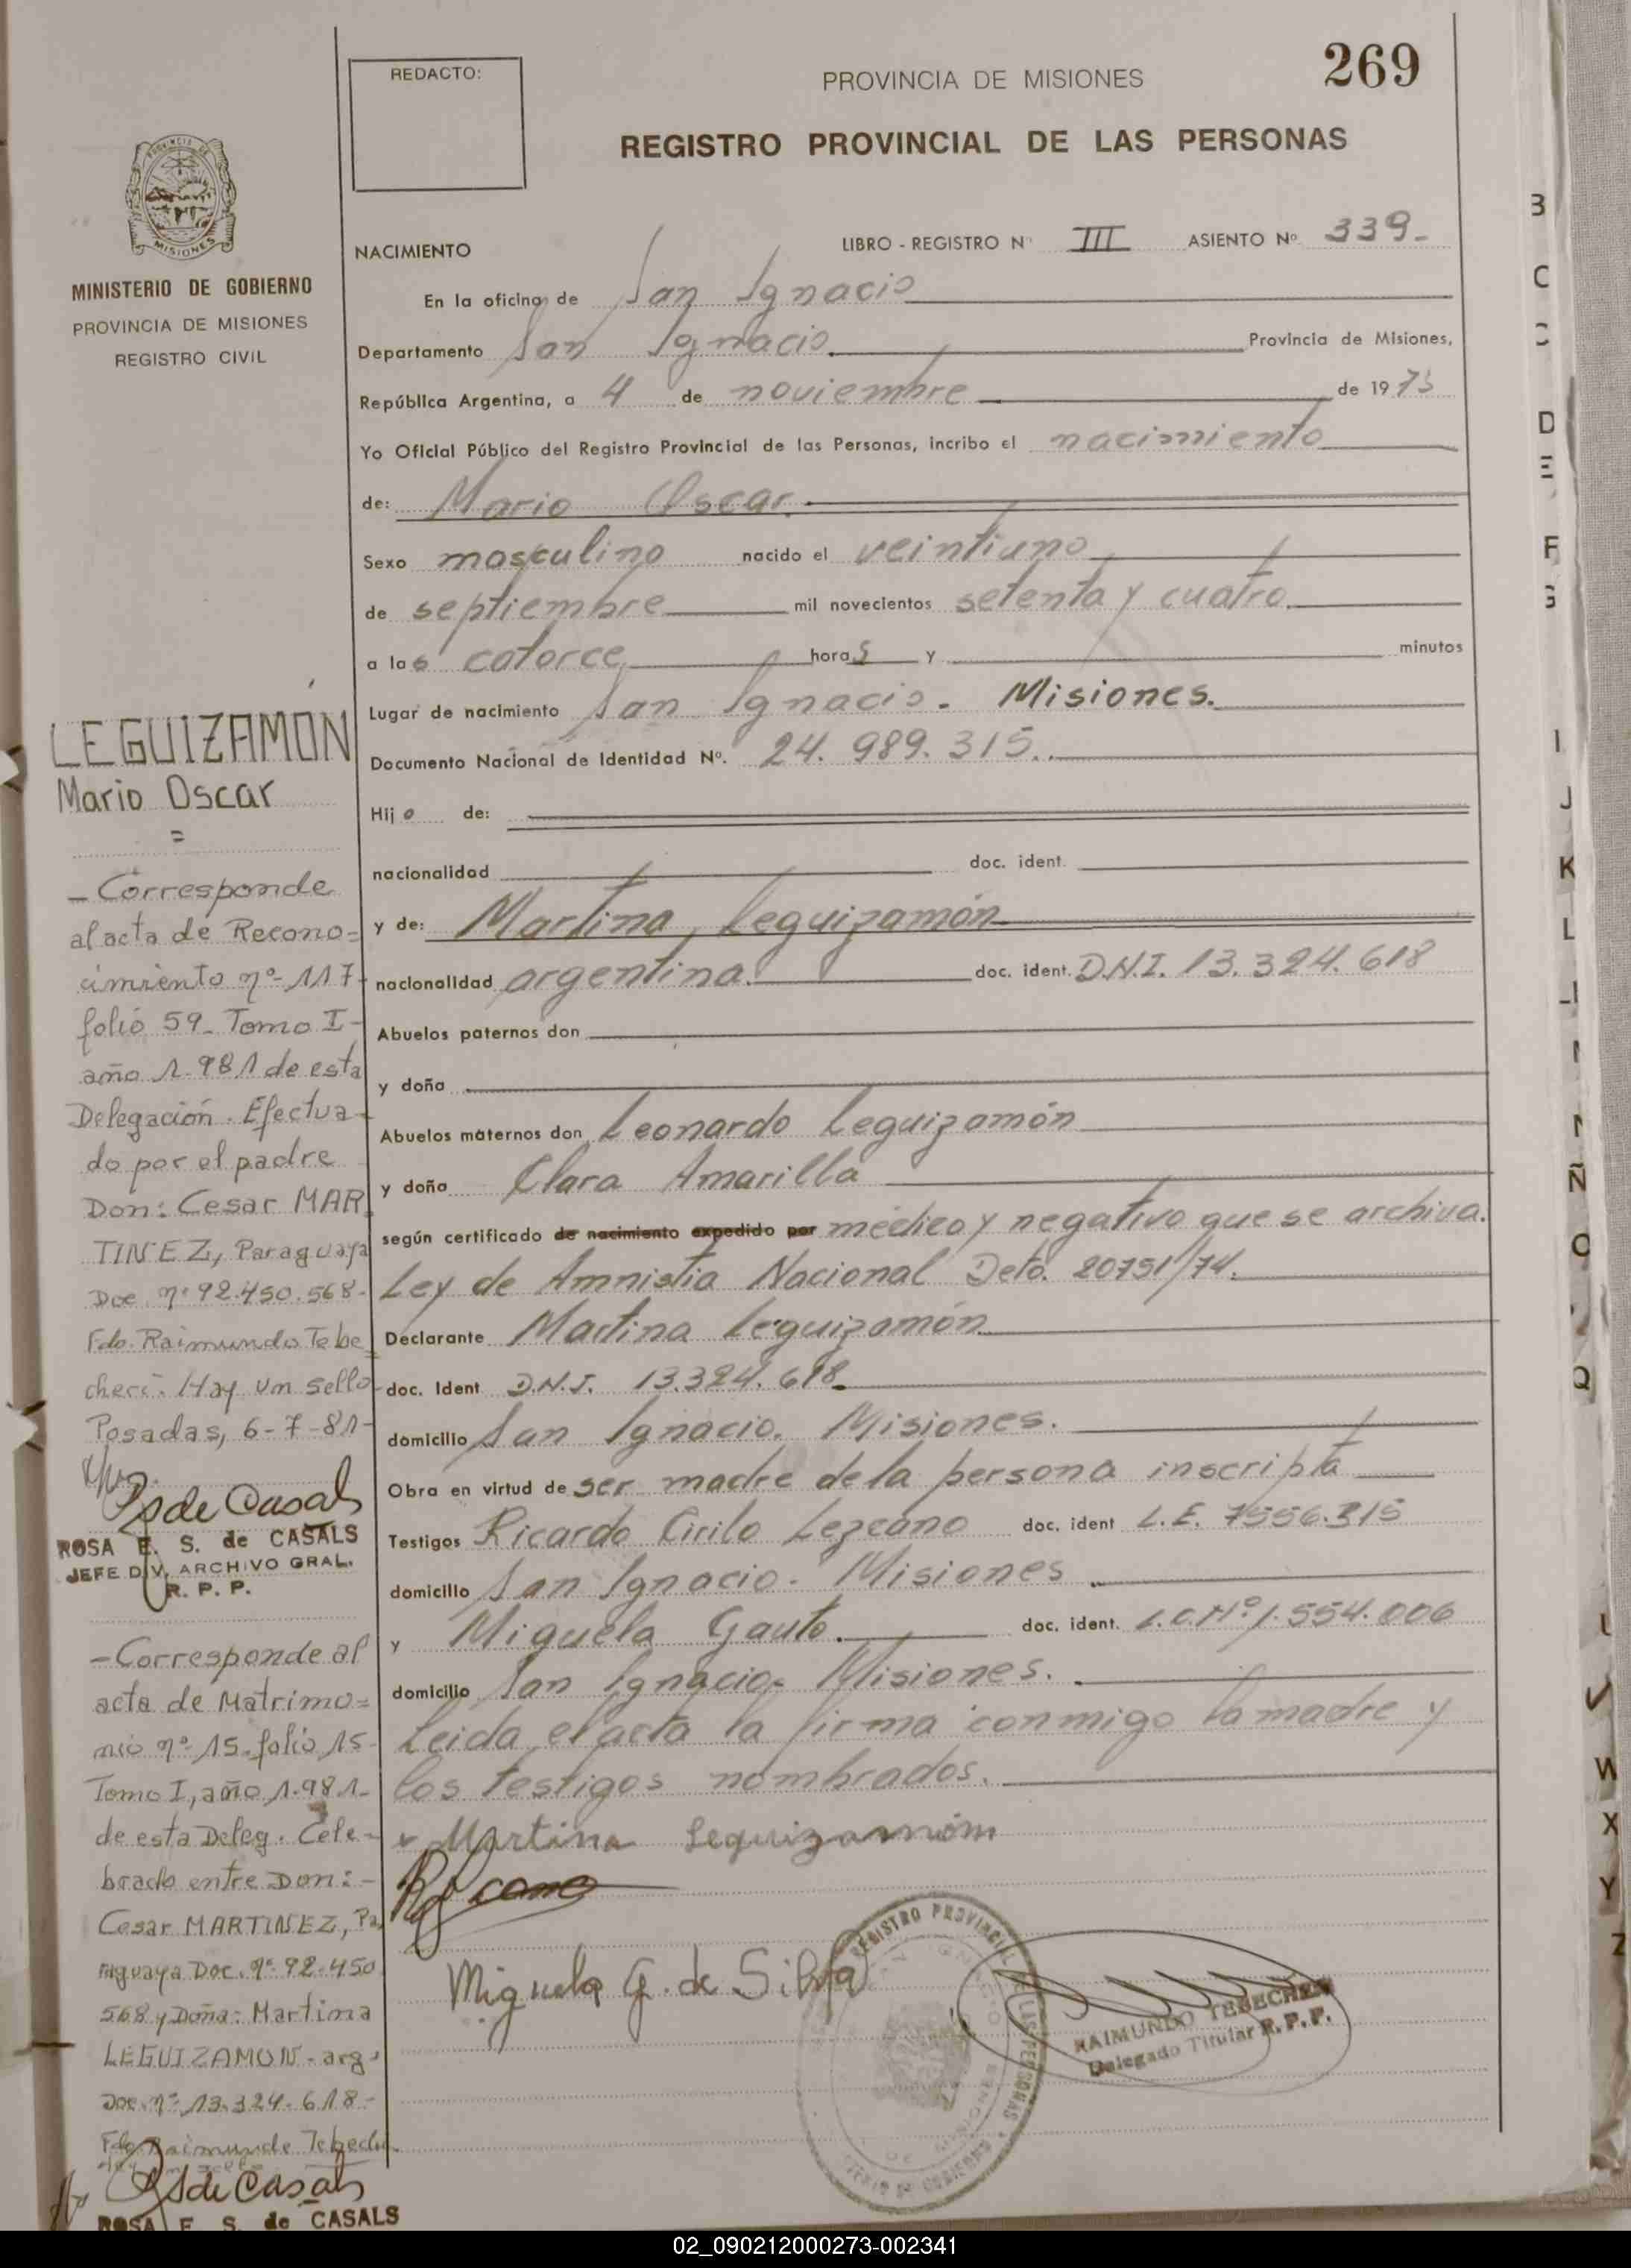 REDACTO:
PROVINCIA DE MISIONES
269
REGISTRO PROVINCIAL DE LAS PERSONAS
PROVINCIA DE
MISIONES
MINISTERIO DE GOBIERNO
PROVINCIA DE MISIONES
REGISTRO CIVIL
NACIMIENTO
LIBRO - REGISTRO Nº III ASIENTO Nº 339-
En la oficina de San Ignacio
Departamento San Ignacio Provincia de Misiones,
República Argentina, a 4 de noviembre de 1975
Yo Oficial Público del Registro Provincial de las Personas, incribo el nacimiento
de: Mario Oscar.
Sexo masculino nacido el veintiuno
de septiembre mil novecientos setenta y cuatro.
a las catorce horas y minutos
Lugar de nacimiento San Ignacio. Misiones.
Documento Nacional de Identidad Nº. 24.989.315..
Hijo de:
nacionalidad doc. ident.
y de: Martina Leguizamón
nacionalidad argentina. doc. ident. D.N.I. 13.324.618
Abuelos paternos don
y doña
Abuelos maternos don Leonardo Leguizamón
y doña Clara Amarilla
según certificado de nacimiento expedido por médico y negativo que se archiva.
Ley de Amnistia Nacional Deto. 20751/74.
Declarante Martina Leguizamón
doc. Ident D.N.I. 13.324.618
domicilio San Ignacio. Misiones.
Obra en virtud de ser madre de la persona inscripta
Testigos Ricardo Cirilo Lezcano doc. ident L.E. 7556.315
domicilio San Ignacio. Misiones
y Miguela Gauto. doc. ident. L.C.Nº 1.554.006
domicilio San Ignacio. Misiones.
Leida el acta la firma conmigo la madre y
los testigos nombrados.
Martina Leguizamóm
Miguela G. de Silva
REGISTRO PROVINCIAL DE LAS PERSONAS
RAIMUNDO TEBECHERI
Delegado Titular R. P. P.
LEGUIZAMON
Mario Oscar
=
- Corresponde
al acta de Recono=
cimiento nº- 117-
folio 59- Tomo I-
año 1.981 de esta
Delegación. Efectua-
do por el padre
Don: Cesar MAR
TINEZ, Paraguaya
Doc. nº 92.450.568-
Fdo. Raimundo Tebe
cheri. Hay un sello
Posadas, 6-7-81-
ROSA E. S. de CASALS
JEFE DIV. ARCHIVO GRAL.
R. P. P.
- Corresponde al
acta de Matrimo=
nio nº 15- folio 15-
Tomo I, año 1.981-
de esta Deleg. Cele-
brado entre Don:-
Cesar MARTINEZ, Pa
raguaya Doc. nº 92.450
568 y Doña: Martina
LEGUIZAMON- arg.
Doc. nº 13.324.618-
Fdo. Raimundo Tebecheri
ROSA E. S. de CASALS
B
C
D
E
F
G
I
J
K
L
N
Ñ
O
Q
W
X
Y
Z
02_090212000273-002341